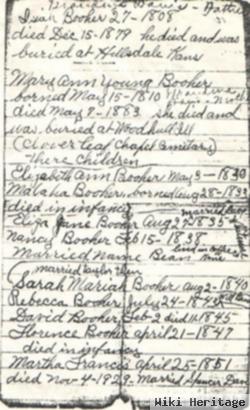 Isaac Booker 27-1808
died Dec 15-1879 he died and was
buried at Hillsdale Kans
Mary Ann Young Booker
borned May 15-1810
died May 9-1883 she died and
was buried at Woodhull Ill
(Clover leaf Chapel Cemitary)
There Children
Elizabeth Ann Booker May 3-1830
Malaha Booker borned Aug 28-183
died in infancy married
Eliza Jane Booker Aug 27-1835
Nancy Booker Feb 15-1838
Married Name Bean
married taylor then
Sarah Mariah Booker Aug 2-1840
Rebecca Booker July 24-1843
David Booker Feb-2 died 11-1845
Florence Booker april 21-1847
died in infancy
Martha Francis april 25-1851
died nov-4-1929-Married Spencer
Wiki Heritage